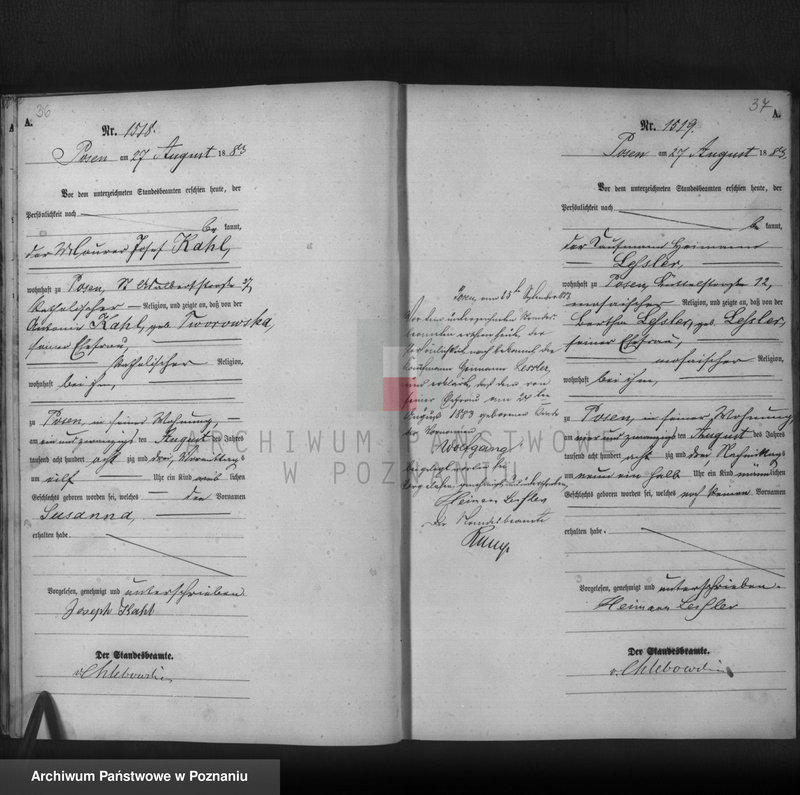 36
A.
Nr. 1518.
Posen am 27 August 1883
Vor dem unterzeichneten Standesbeamten erschien heute, der
Persönlichkeit nach
be kannt,
der Maurer Josef Kahl,
wohnhaft zu Posen, St Adalbertstraße
katholischer Religion, und zeigte an, daß von der
Antonie Kahl, geb. Tworowska,
seiner Ehefrau,
katholischer Religion,
wohnhaft bei ihm,
zu Posen, in seiner Wohnung,
am ein und zwanzigsten August des Jahres
tausend acht hundert acht zig und drei Vormittags
um elf Uhr ein Kind weib lichen
Geschlechts geboren worden sei, welches den Vornamen
Susanna,
erhalten habe.
Vorgelesen, genehmigt und unterschrieben
Joseph Kahl
Der Standesbeamte.
v. Chlebowski
37
A.
Nr. 1519.
Posen am 27 August 1883.
Vor dem unterzeichneten Standesbeamten erschien heute, der
Persönlichkeit nach
be kannt,
der Kaufmann Heimann
Lessler,
wohnhaft zu Posen, 12,
mosaischer Religion, und zeigte an, daß von der
Bertha Lessler, geb. Lessler,
seiner Ehefrau,
mosaischer Religion,
wohnhaft bei ihm,
zu Posen, in seiner Wohnung,
am vier und zwanzigsten August des Jahres
tausend acht hundert acht zig und drei Nachmittags
um neun ein halb Uhr ein Kind männ lichen
Geschlechts geboren worden sei, welches noch keinen Vornamen
erhalten habe.
Vorgelesen, genehmigt und unterschrieben.
Heimann Lessler
Der Standesbeamte.
v. Chlebowski
Posen, am September 1883
Vor dem unterzeichneten Standes-
beamten erschien heute, der
Persönlichkeit nach bekannt, der
Kaufmann Heimann Lessler,
und erklärte, daß dem von
seiner Ehefrau am 24 ten
August 1883 geborenen Kinde
der Vorname
Wolfgang
beigelegt worden sei.
Vorgelesen, genehmigt und unterschrieben
Heimann Lessler
Der Standesbeamte
ARCHIWUM PAŃSTWOWE
W POZNANIU
Archiwum Państwowe w Poznaniu